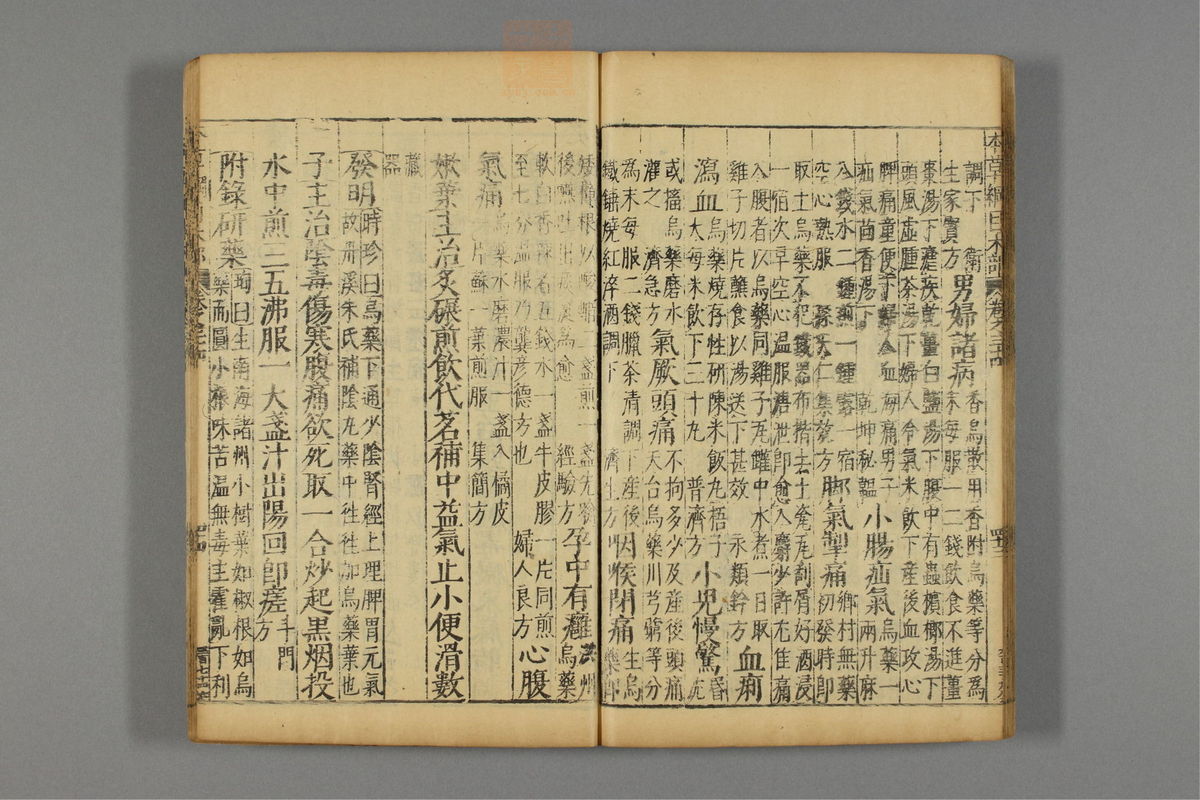 本草綱目木部 卷之三十四
調下 衛
生家寶方
男婦諸病
香烏散用香附烏藥等分為
末每服一二錢飲食不進薑
棗湯下瘧疾乾薑白鹽湯下腹中有蟲檳榔湯下
頭風虛腫茶湯下婦人冷氣米飲下產後血攻心
脾痛童便下婦人血海痛男子
疝氣茴香湯下 乾坤秘韞
小腸疝氣
烏藥一
兩升麻
八錢水二鍾煎一鍾露一宿
空心熱服 孫天仁集效方
腳氣掣痛
鄉村無藥
初發時即
取土烏藥不犯鐵器布揩去土瓷瓦刮屑好酒浸
一宿次早空心溫服溏泄即愈入麝少許尤佳痛
入腹者以烏藥同雞子瓦罐中水煮一日取
雞子切片蘸食以湯送下甚效 永類鈐方
血痢
瀉血
烏藥燒存性研陳米飯丸梧子
大每米飲下三十丸 普濟方
小兒慢驚
昏沉
或搐烏藥磨水
灌之 濟急方
氣厥頭痛
不拘多少及產後頭痛
天台烏藥川芎藭等分
為末每服二錢臘茶清調下產後
鐵錘燒紅淬酒調下 濟生方
咽喉閉痛
生烏
藥即
矮樟根以酸醋二盞煎一盞先噙
後嚥吐出痰涎為愈 經驗方
孕中有癰
洪州
烏藥
軟白香辣者五錢水一盞牛皮膠一片同煎
至七分溫服乃龔彥德方也 婦人良方
心腹
氣痛
烏藥水磨濃汁一盞入橘皮
一片蘇一葉煎服 集簡方
嫩葉主治炙碾煎飲代茗補中益氣止小便滑數
藏
器
發明
時珍曰烏藥下通少陰腎經上理脾胃元氣
故丹溪朱氏補陰丸藥中往往加烏藥葉也
子主治陰毒傷寒腹痛欲死取一合炒起黑烟投
水中煎三五沸服一大盞汁出陽回即瘥
斗門
方
附錄研藥
珣曰生南海諸州小樹葉如椒根如烏
藥而圓小根味苦溫無毒主霍亂下利